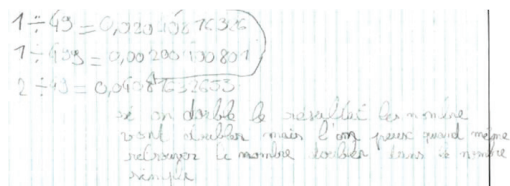 1 ÷ 49 = 0,020408 16326
1 ÷ 499 = 0,00200400801
2 ÷ 49 = 0,04081632653
si on double le résultat les nombre
vont doubler mais l'on peux quand même
retrouver le nombre doubler dans le nombre
simple